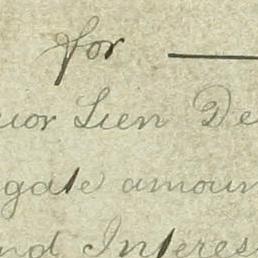 for
ior Lien De
gate amoun
nd Interes